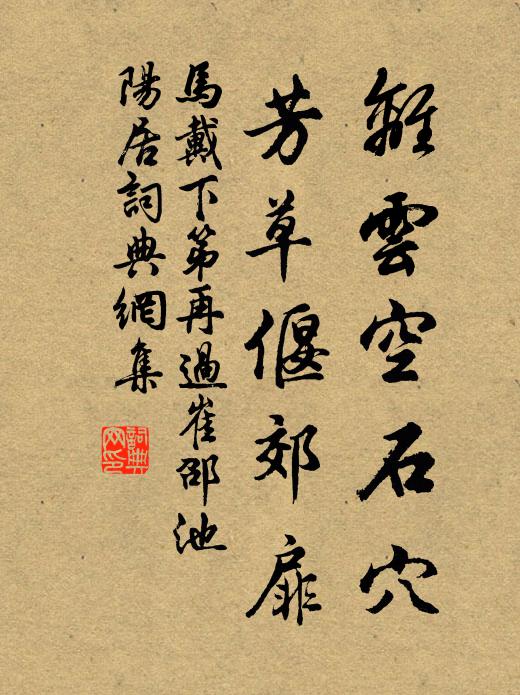 離雲空石穴
芳草偃郊扉
馬戴下第再過崔邵池
陽居詞典網集
詞典網印